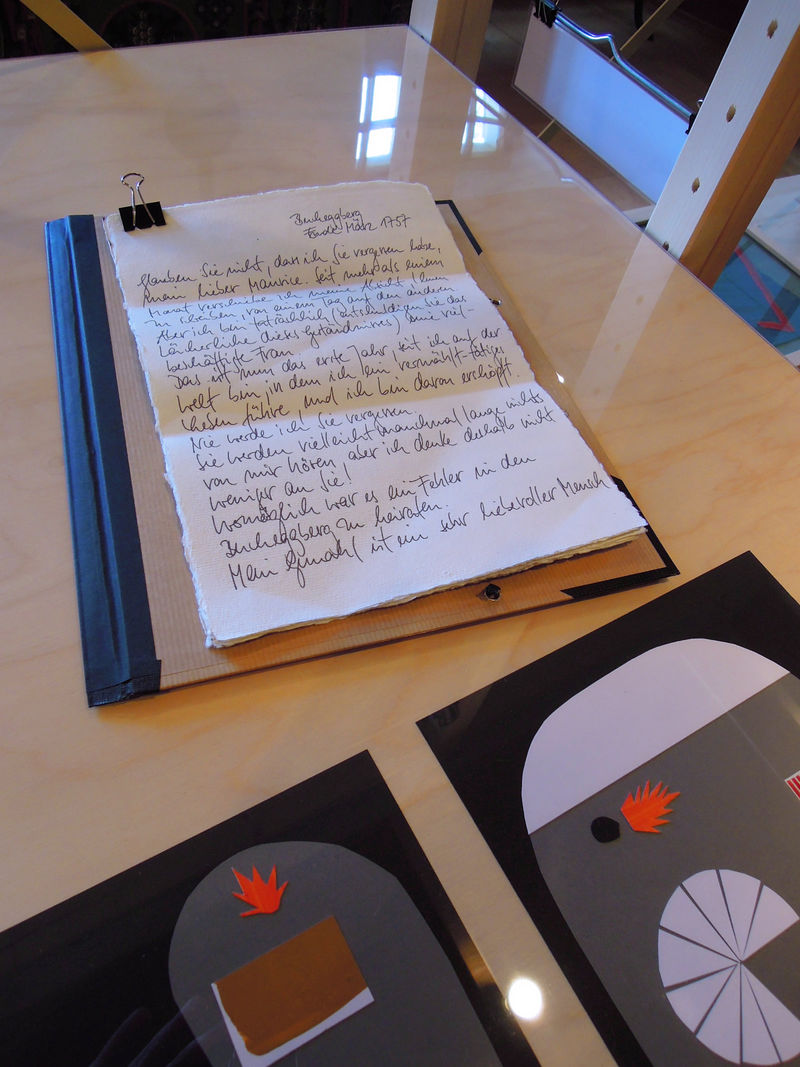 Bucheggberg
Ende März 1757
Glauben Sie nicht, dass ich Sie vergessen habe,
mein lieber Maurice. Seit mehr als einem
Monat verschiebe ich meine Absicht Ihnen
zu schreiben, von einem Tag auf den anderen
Aber ich bin tatsächlich (entschuldigen Sie das
Lächerliche dieses Geständnisses) eine viel-
beschäftigte Frau.
Das ist nun das erste Jahr, seit ich auf der
Welt bin, in dem ich ein tätiges
Leben führe und ich bin davon erschöpft.
Nie werde ich Sie vergessen.
Sie werden vielleicht manchmal lange nichts
von mir hören, aber ich denke deshalb nicht
weniger an Sie!
Womöglich war es ein Fehler in den
Bucheggberg zu heiraten.
Mein Gemahl ist ein sehr liebevoller Mensch